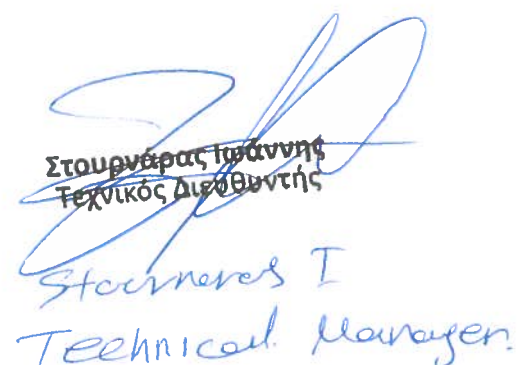 Στουρνάρας Ιωάννης
Τεχνικός Διευθυντής
Stournaras I
Technical Manager.